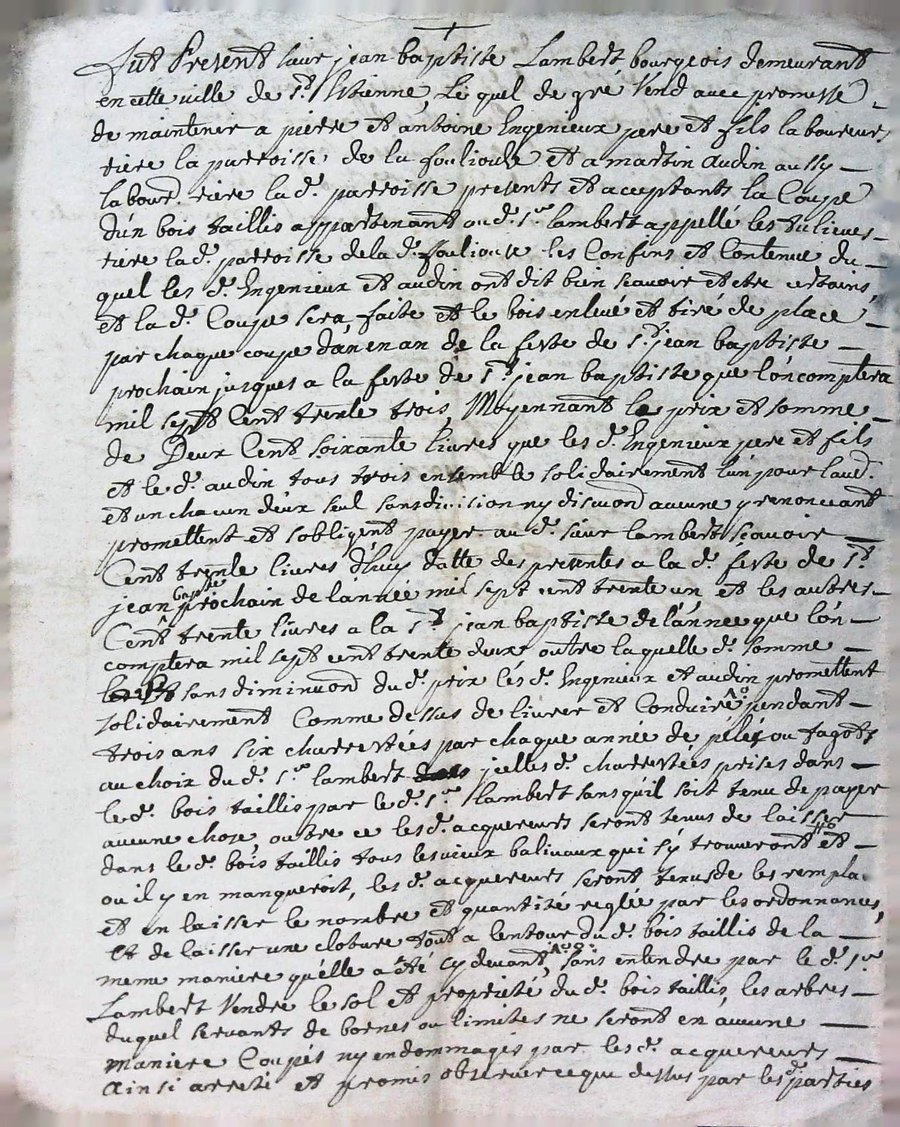 fut Present sieur jean baptiste Lambert bourgeois demeurant
en cette ville de St. Estienne, Le quel de gré Vend avec promesse
de maintenir a pierre et antoine Engenieux pere et fils laboureurs
riere la parroisse de la fouliouse et a martin audin aussy
labourd. riere lad. parroisse presents et acceptants la Coupe
d'un bois taillis appartenant aud. sr. lambert appellé les
riere lad. parroisse de lad. fouliouse les Confins et Contenue du
quel les d. Engenieux et audin ont dit bien scavoir et etre certains,
et la d. Coupe sera faite et le bois enlevé et tiré de place
par chaque coupe d'an en an de la feste de St. jean baptiste
prochain jusques a la feste de St. jean baptiste que l'on comptera
mil sept Cent trente trois, Moyennant le prix et somme
de Deux Cent soixante livres que les d. Engenieux pere et fils
et le d. audin tous trois ensemble solidairement l'un pour laud.
et un chacun d'eux seul sans division ny discuond aucune y renonceant
promettent et s'obligent payer au d. sieur lambert scavoir
Cent trente livres d'huy datte des presentes a la d. feste de St.
jean baptte prochain de l'année mil sept cent trente un et les autres
Cent trente livres a la St. jean baptiste de l'année que l'on
comptera mil sept cent trente deux outre laquelle d. somme
sans diminuond du d. prix les d. Engenieux et audin promettent
solidairement Comme dessus de livrer et Conduire no. pendant
trois ans six charrettées par chaque année de pelés ou fagots
au choix du d. sr. lambert jcelles d. charrettées prises dans
le d. bois taillis par le d. sr. lambert sans qu'il soit tenu de payer
aucune chose, outre ce les d. acquereurs seront tenus de laisser
dans le d. bois taillis tous les vieux balivaux qui s'y trouveront et
ou il y en manqueroit, les d. acquereurs seront tenus de les rempla.
et en laisser le nombre et quantité reglée par les ordonnances,
et de laisser une cloture tout a l'entour du d. bois taillis de la
meme maniere qu'elle a eté cy devant, sans entendre par le d. sr.
Lambert Vendre le sol et proprieté du d. bois taillis, les arbres
duquel servants de bornes ou limites ne seront en aucune
maniere Coupés ny endommagés par les d. acquereurs
ainsi arreté et promis observer ce que dessus par les d. parties